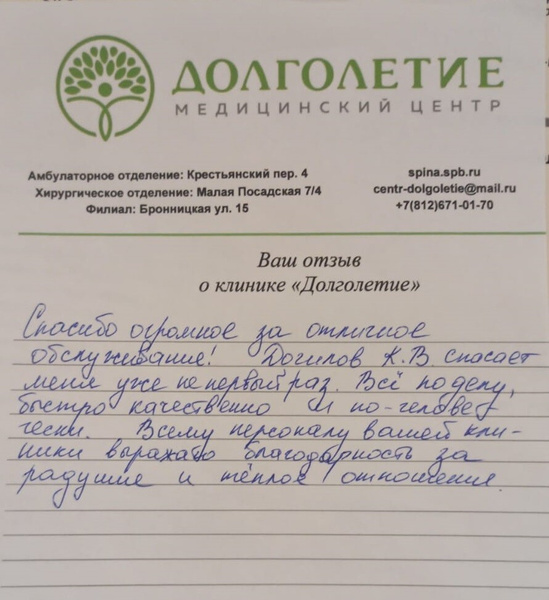 ДОЛГОЛЕТИЕ
МЕДИЦИНСКИЙ ЦЕНТР
Амбулаторное отделение: Крестьянский пер. 4
Хирургическое отделение: Малая Посадская 7/4
Филиал: Бронницкая ул. 15
spina.spb.ru
centr-dolgoletie@mail.ru
+7(812)671-01-70
Ваш отзыв
о клинике «Долголетие»
Спасибо огромное за отличное
обслуживание! Догилов К.В. спасает
меня уже не первый раз. Всё по делу,
быстро качественно и по-человеч
чески. Всему персоналу вашей кли-
ники выражаю благодарность за
радушие и тёплое отношение